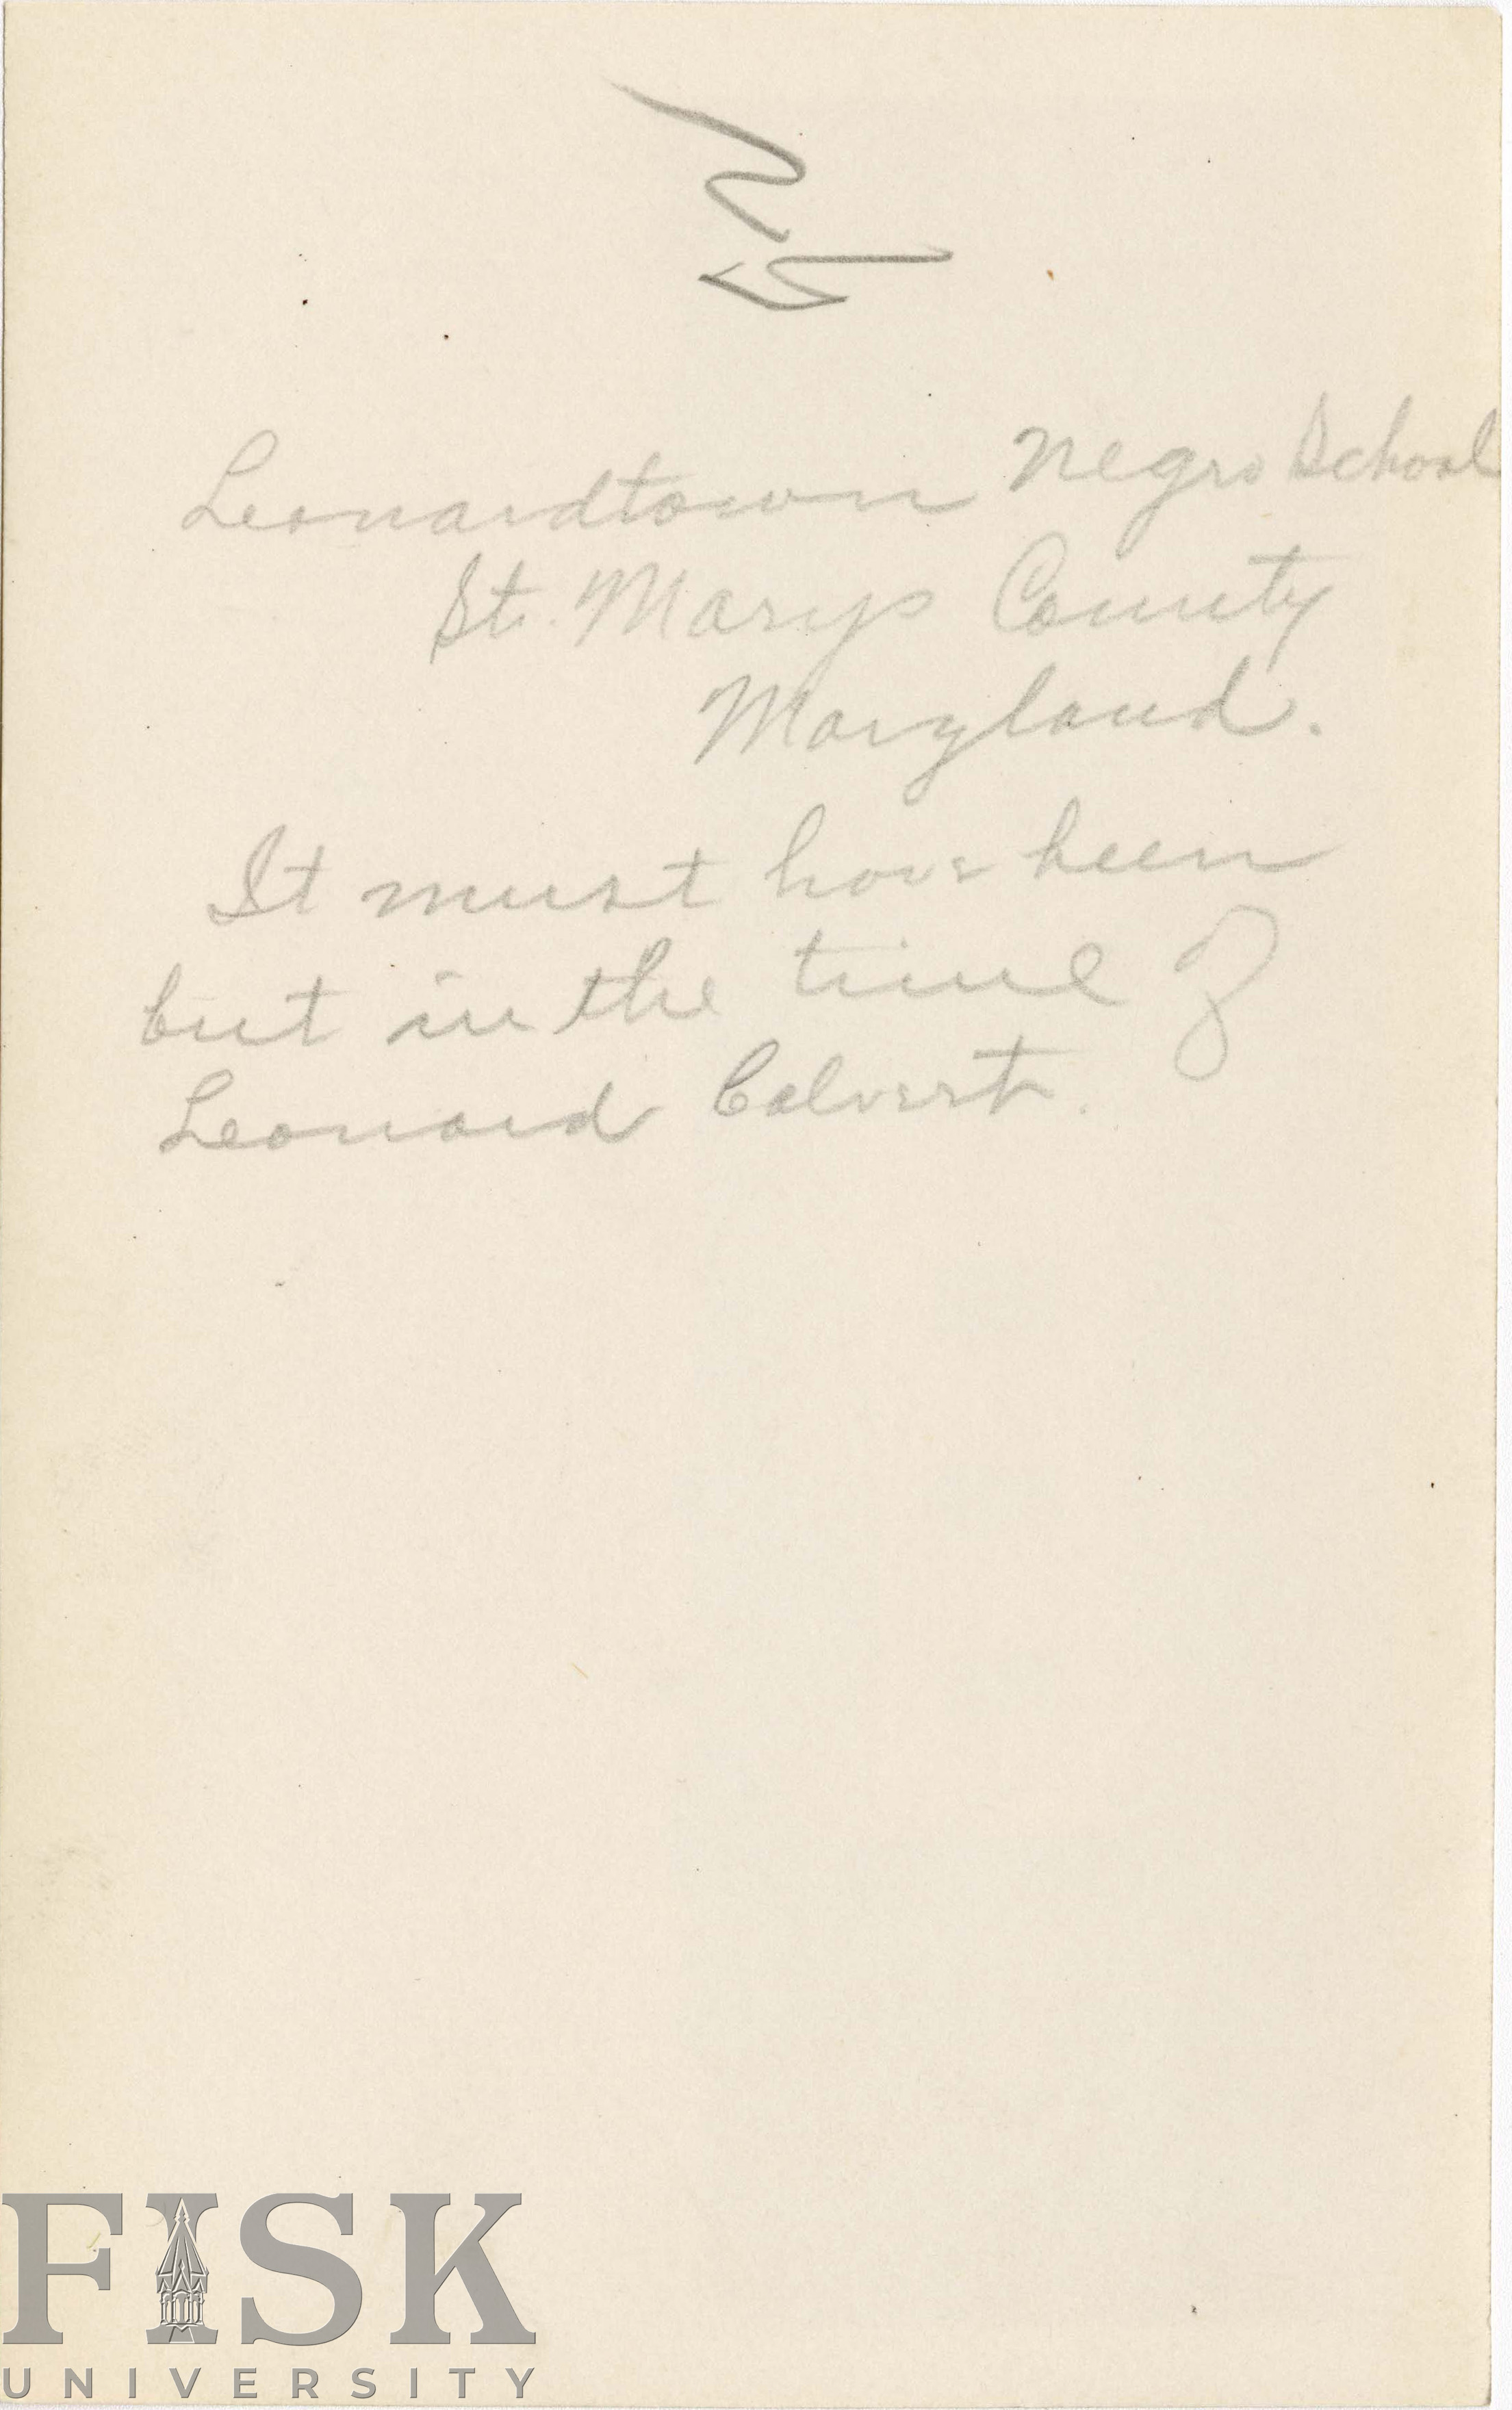 Leonardtown Negro School
St. Marys County
Maryland.
It must have been
but in the time of
Leonard Calvert.
FISK
UNIVERSITY